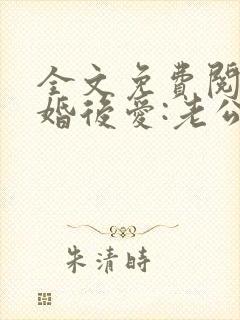 全文免費閱
婚後愛:老公
朱清時